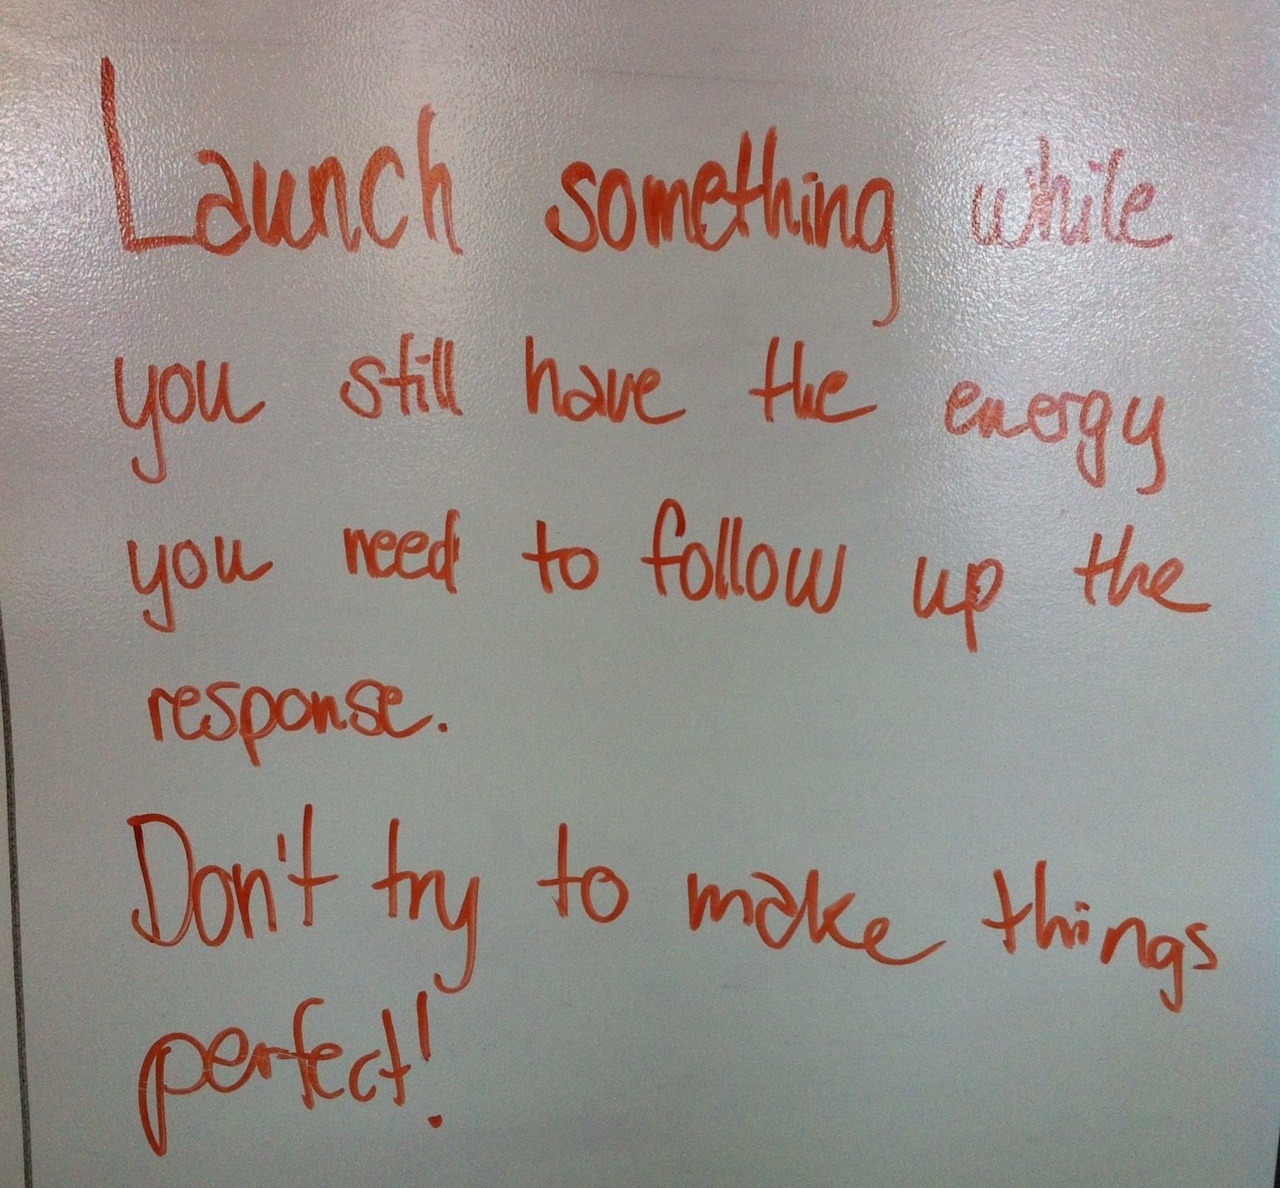 Launch something while
you still have the energy
you need to follow up the
response.
Don't try to make things
perfect!